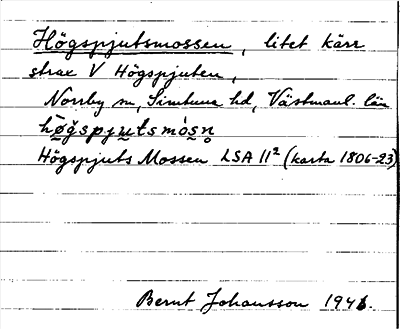 Högspjutsmossen, litet kärr
strax V Högspjuten,
Norrby sn, Simtuna hd, Västmanl. län
hø̄gspju̠tsmòsn̥
Högspjuts Mossen LSA 11² (karta 1806-23)
Bernt Johansson 1946.